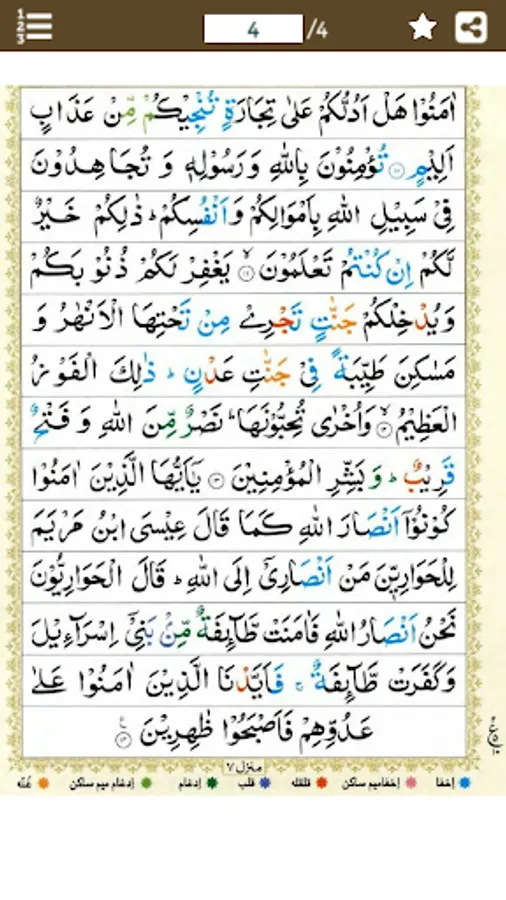 4 /4
اٰمَنُوْا هَلْ اَدُلُّكُمْ عَلٰى تِجَارَةٍ تُنْجِيْكُمْ مِّنْ عَذَابٍ
اَلِيْمٍ ۝۱۰ تُؤْمِنُوْنَ بِاللّٰهِ وَرَسُوْلِهٖ وَ تُجَاهِدُوْنَ
فِيْ سَبِيْلِ اللّٰهِ بِاَمْوَالِكُمْ وَاَنْفُسِكُمْ ؕ ذٰلِكُمْ خَيْرٌ
لَّكُمْ اِنْ كُنْتُمْ تَعْلَمُوْنَ ۝۱۱ۙ يَغْفِرْ لَكُمْ ذُنُوْبَكُمْ
وَيُدْخِلْكُمْ جَنّٰتٍ تَجْرِيْ مِنْ تَحْتِهَا الْاَنْهٰرُ وَ
مَسٰكِنَ طَيِّبَةً فِيْ جَنّٰتِ عَدْنٍ ؕ ذٰلِكَ الْفَوْزُ
الْعَظِيْمُ ۝۱۲ۙ وَاُخْرٰى تُحِبُّوْنَهَا ؕ نَصْرٌ مِّنَ اللّٰهِ وَ فَتْحٌ
قَرِيْبٌ ؕ وَ بَشِّرِ الْمُؤْمِنِيْنَ ۝۱۳ يٰۤاَيُّهَا الَّذِيْنَ اٰمَنُوْا
كُوْنُوْۤا اَنْصَارَ اللّٰهِ كَمَا قَالَ عِيْسَى ابْنُ مَرْيَمَ
لِلْحَوَارِيّٖنَ مَنْ اَنْصَارِيْۤ اِلَى اللّٰهِ ؕ قَالَ الْحَوَارِيُّوْنَ
نَحْنُ اَنْصَارُ اللّٰهِ فَاٰمَنَتْ طَّآىِٕفَةٌ مِّنْۢ بَنِيْۤ اِسْرَآءِيْلَ
وَكَفَرَتْ طَّآىِٕفَةٌ ۚ فَاَيَّدْنَا الَّذِيْنَ اٰمَنُوْا عَلٰى
عَدُوِّهِمْ فَاَصْبَحُوْا ظٰهِرِيْنَ ۝۱۴
منزل ۷
إخفا إخفامیم ساکن قلقله قلب إدغام إدغام میم ساکن غنّه